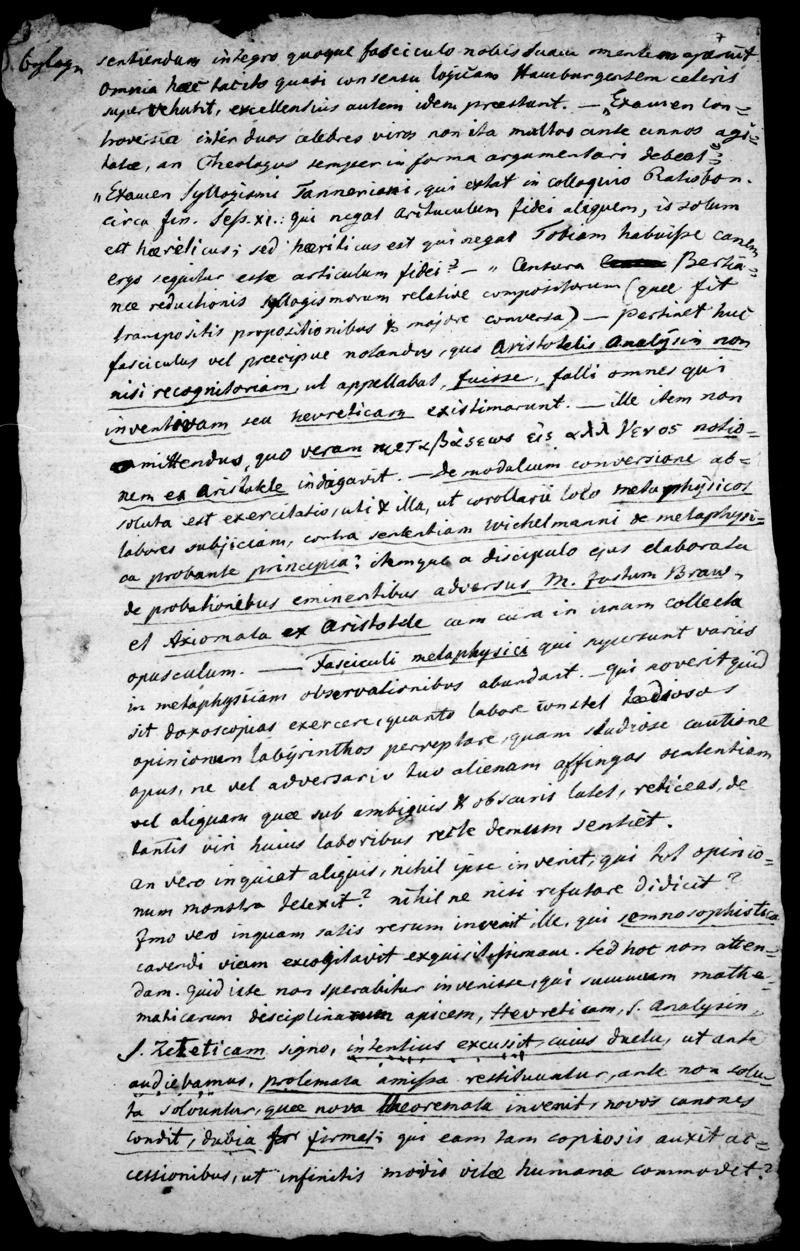 7
sentiendum integro quoque fasciculo nobis suam mentem aperuit.
omnia haec tacito quasi consensu logicam Hamburgensem celeris
supervehunt, excellentius autem idem praestant. — „Examen con=
troversiae inter duos celebres viros non ita multos ante annos agi=
tatae, an Theologus semper in forma argumentari debeat"
„Examen Syllogismi Tanneriani, qui extat in colloquio Ratisbon.
circa fin. Sess. XI.: qui negat articulum fidei aliquem, is solum
est haereticus; sed haereticus est qui negat Tobiam habuisse canem
ergo sequitur esse articulum fidei? — „ Censura Bertia=
nae reductionis syllogismorum relative compositorum (quae fit
transpositis propositionibus & majore conversa) — pertinet huc
fasciculus vel praecipue notandus, quo Aristotelis Analysin non
nisi recognitoriam, ut appellabat, fuisse, falli omnes qui
inventivam seu hevreticam existimarunt. — ille item non
omittendus, quo veram μεταβάσεως εἰς αλλ γενος notio=
nem ex Aristotele indagavit. — De modalium conversione ab=
soluta est exercitatio, uti & illa, ut corollarii loco metaphysicos
labores subjiciam, contra sententiam Wichelmanni de metaphysi=
ca probante principia; itemque a discipulo ejus elaborata
de probationibus eminentibus adversus M. Justum Braw,
et Axiomata ex Aristotele cum cura in unam collecta
opusculum. — Fasciculi metaphysici qui supersunt variis
in metaphysicam observationibus abundant. — qui noverit quid
sit doxoscopias exercere, quanto labore constet taediosos
opinionum labyrinthos perreptare, quam studiose cautione
opus, ne vel adversario tuo alienam affingas sententiam
vel aliquam quae sub ambiguis & obscuris latet, reticeas, de
tantis viri huius laboribus recte demum sentiet.
an vero inquiat aliquis, nihil ipse invenit, qui tot opinio=
num monstra detexit? nihil ne nisi refutare didicit?
Imo vero inquam satis rerum invenit ille, qui semnosophistica
cavendi viam excogitavit exquisitissimam. sed hoc non atten=
dam. quid iste non sperabitur invenisse, qui summam mathe=
maticarum disciplinarum apicem, Hevreticam, s. Analysin,
s. Zeteticam signo, intentius excussit, cuius ductu, ut ante
audiebamus, prolemata amissa restituuntur, ante non solu=
ta solvuntur, quae nova theoremata invenit, novos canones
condit, dubia firmat; qui eam tam copiosis auxit ac=
cessionibus, ut infinitis modis vitae humanae commodet?